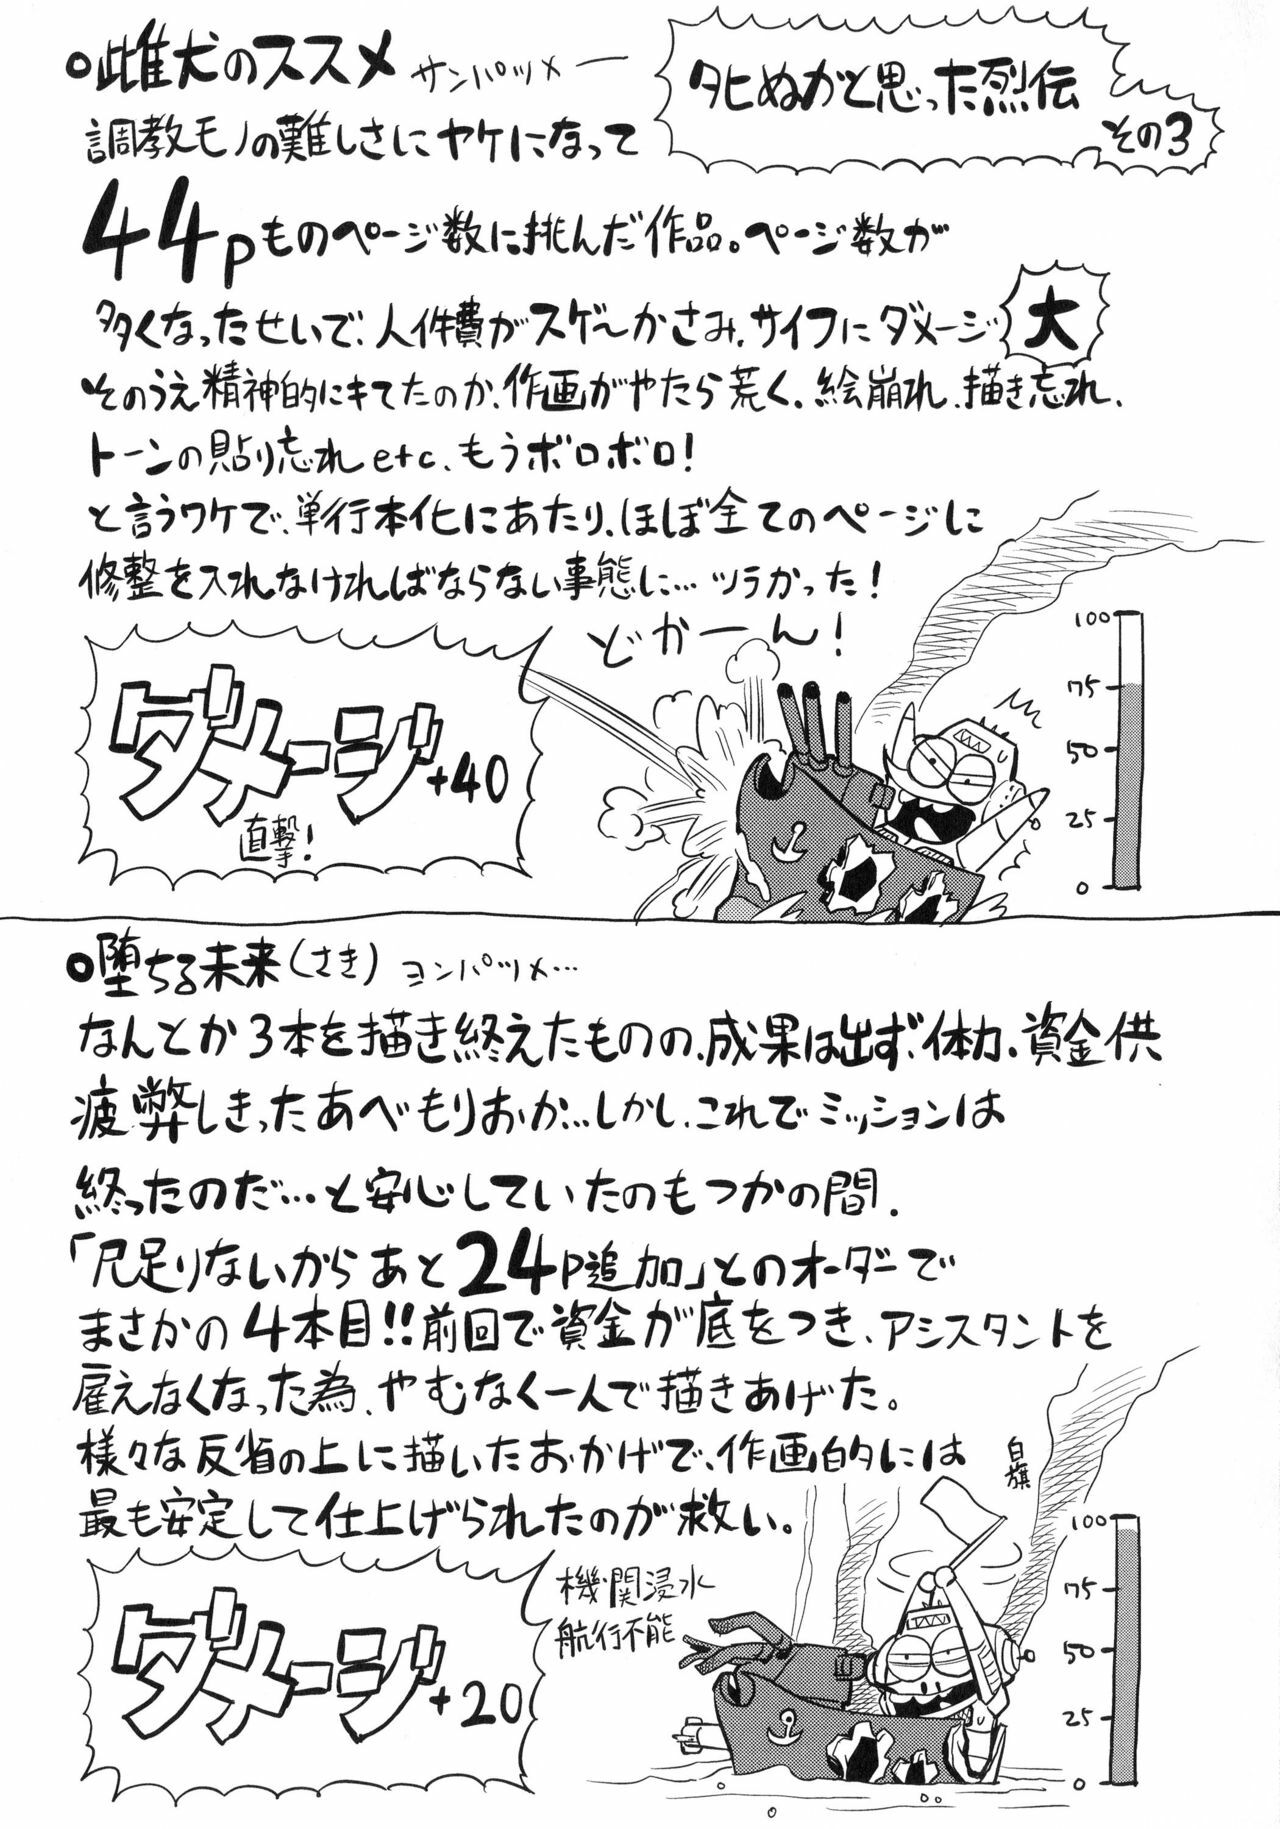 タヒぬかと思った烈伝
その3
•雌犬のススメ サンパツメー
調教モノの難しさにヤケになって
44pものページ数に挑んだ作品。ページ数が
多くなったせいで、人件費がスゲ〜かさみ、サイフにダメージ大
そのうえ精神的にキてたのか、作画がやたら荒く、絵崩れ、描き忘れ、
トーンの貼り忘れetc、もうボロボロ！
と言うワケで、単行本化にあたり、ほぼ全てのページに
修整を入れなければならない事態に…ツラかった！
どかーん！
ダメージ+40
直撃！
100
75
50
25
0
•堕ちる未来（さき） ヨンパツメ…
なんとか3本を描き終えたものの、成果は出ず、体力、資金供
疲弊しきったあべもりおか…しかし、これでミッションは
終ったのだ…と安心していたのもつかの間、
「尺足りないからあと24P追加」とのオーダーで
まさかの4本目!!前回で資金が底をつき、アシスタントを
雇えなくなった為、やむなく一人で描きあげた。
様々な反省の上に描いたおかげで、作画的には
最も安定して仕上げられたのが救い。
ダメージ+20
機関浸水
航行不能
白旗
100
75
50
25
0